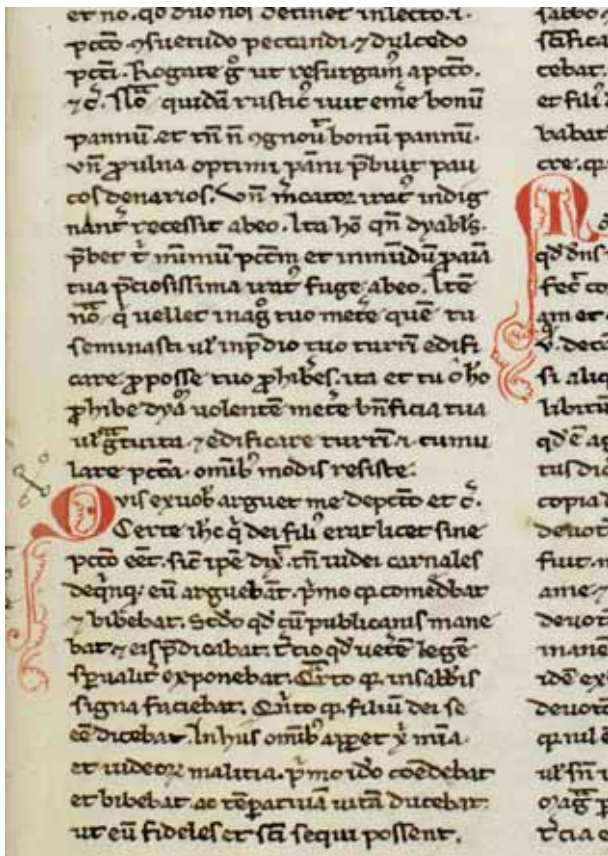 et no. qo duo noi detinet in lecto. i.
pccō ꝯsuetudo peccandi. ⁊ dulcedo
pccī. Rogate ḡ ut resurgam̄ a pccō.
⁊ c̄. Nō quidā rustic᷒ iuit em̄e bonū
pannū. et tn̄ n̄ ꝯgnoū bonū pannū.
vn̄ ꝓ ulna optimi pāni p̄buit pau
cos denarios. vn̄ m̄cator irat᷒ indig
nāns recessit ab eo. Ita hō qn̄ dyabl̄s
p̄bet t̄ minimū pccm̄ et inmūdū ꝓ aīa
tua p̄ciosissima irat᷒ fuge ab eo. Itē
q uellet in ag tuo metē quē tu
seminasti ul̄ in p̄dio tuo turrī edifi
care. ꝓ posse tuo ꝓhibēs. ita et tu o ho
ꝓhibe dya uolentē metē bn̄ficia tua
ul̄ gtuita. ⁊ edificare turrī. i. cumu
lare pccā. omib᷒ modis resiste.
Qvis ex uob᷒ arguet me de pccō et c̄.
Certe ihc q̄ dei fili᷒ erat licet sine
pccō eēt. sic̄ ipē dix̄. tn̄ iudei carnales
de qnq; eū arguebāt. p̄mo qꝛ comedebat
⁊ bibebat. Scdo qd̄ cū publicanis mane
bat ⁊ eis p̄dicabat. t̄cio qd̄ uetē̄ legē
sp̄ualit̄ exponebat. Qrto qꝛ in sabbīs
signa faciebat. Qnto qꝛ filiū dei se
eē dicebat. In his omib᷒ appet x̄ mīa
et iudeoꝝ malitia. p̄mo ido coēdebat
et bibebat ac tēperatiuā uitā ducebat
ut eū fideles et scī sequi possent.
cebat.
et fili
babat
qd̄ dn̄s
fec̄ co
am et
v. dec
si aliq
libitū
qd̄ ē ag
tus dic
copia
deuot
fuit.
ame ⁊
deuot
manē
idē ex
deuot